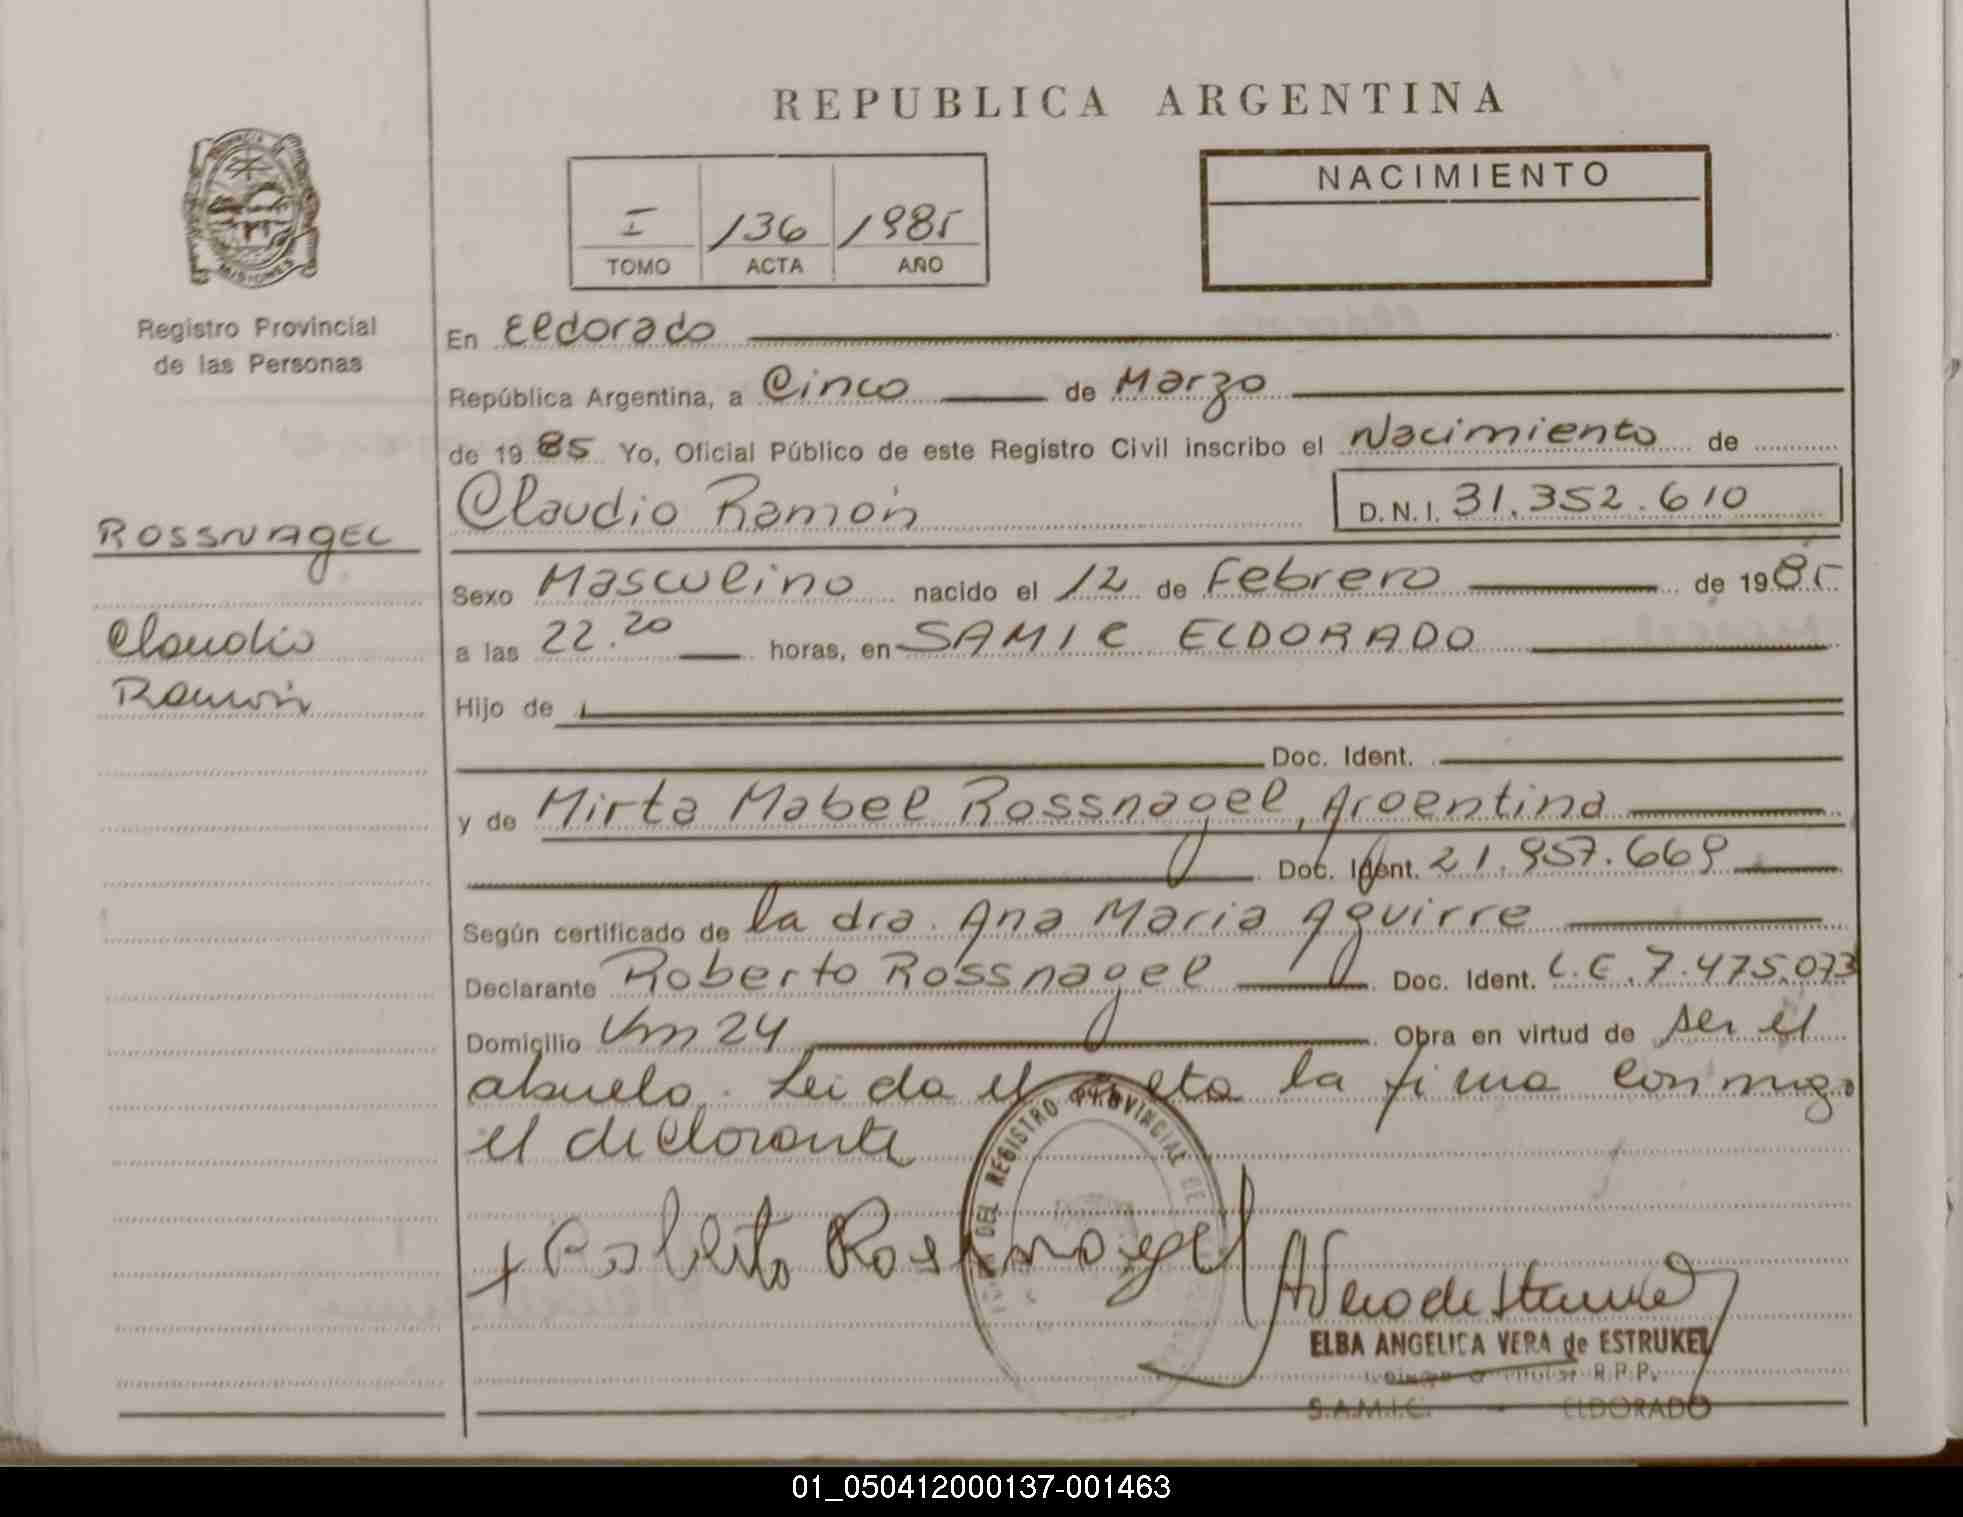 REPUBLICA ARGENTINA
PROVINCIA
MISIONES
Registro Provincial
de las Personas
I /136 /1985
TOMO ACTA AÑO
NACIMIENTO
En Eldorado
República Argentina, a Cinco de Marzo
de 1985 Yo, Oficial Público de este Registro Civil inscribo el Nacimiento de
Claudio Ramón D.N.I. 31.352.610
ROSSNAGEL
Claudio
Ramón
Sexo Masculino nacido el 12 de Febrero de 1985
a las 22.20 horas, en SAMIC ELDORADO
Hijo de
Doc. Ident.
y de Mirta Mabel Rossnagel, Argentina
Doc. Ident. 21.957.669
Según certificado de la dra. Ana Maria Aguirre
Declarante Roberto Rossnagel Doc. Ident. L.E. 7.475.073
Domicilio Km 24 Obra en virtud de ser el
abuelo. Leida el acta la firma conmigo
el declarante
+ Roberto Rossnagel
DEL REGISTRO PROVINCIAL DE
AVera de Estrukel
ELBA ANGELICA VERA de ESTRUKEL
R.P.P.
S.A.M.I.C. - ELDORADO
01_050412000137-001463